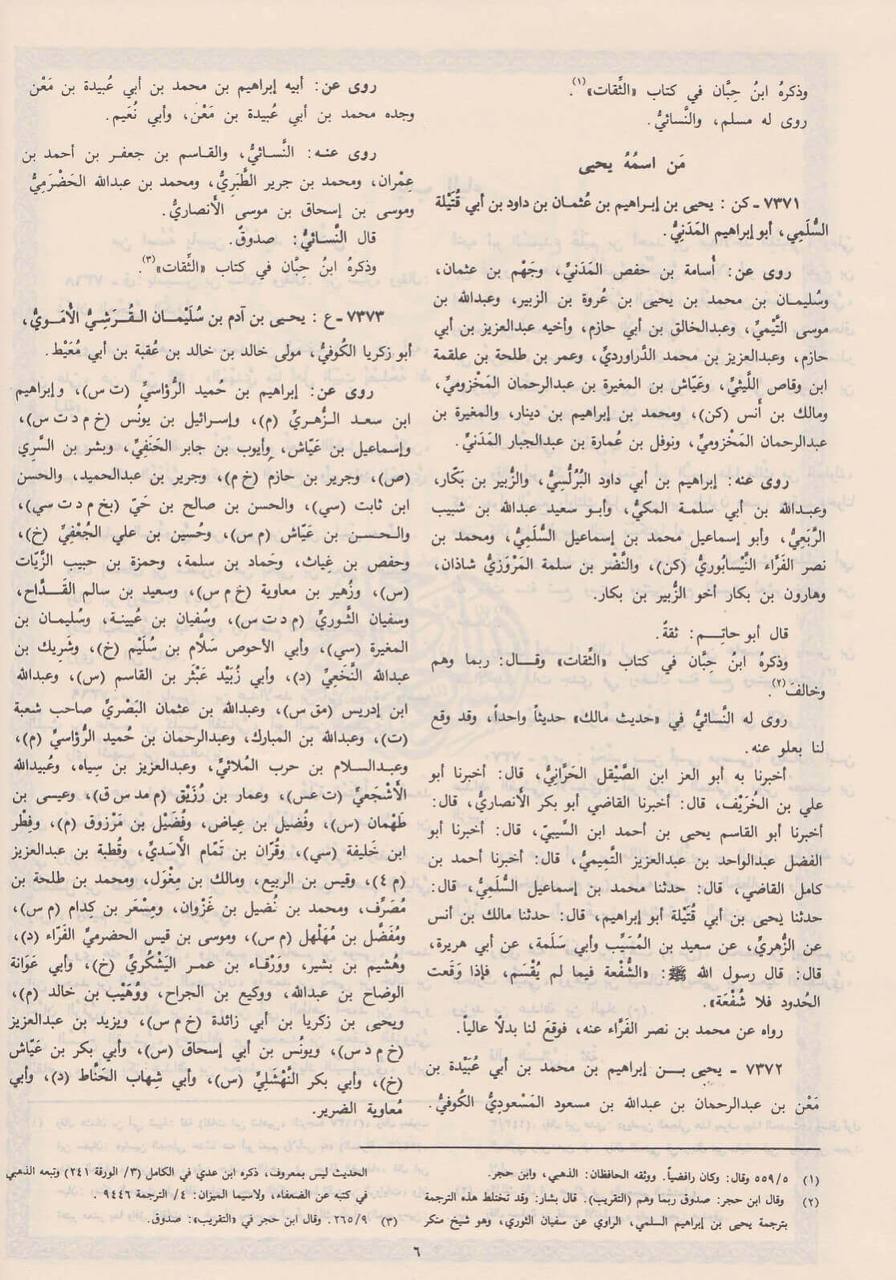 وذكرهُ ابنُ حِبَّان في كتاب «الثِّقات»(١).
روى له مسلم، والنَّسائيُّ.
مَن اسمُهُ يحيى
٧٣٧١ - كن : يحيى بن إبراهيم بن عُثمان بن داود بن أبي قُتَيْلة
السُّلَمِي، أبو إبراهيم المَدَنِيُّ.
روى عن: أسامة بن حفص المَدَنيِّ، وجَهْم بن عثمان،
وسُليمان بن محمد بن يحيى بن عُروة بن الزبير، وعبدالله بن
موسى التَّيْميِّ، وعبدالخالق بن أبي حازم، وأخيه عبدالعزيز بن أبي
حازم، وعبدالعزيز بن محمد الدَّراورديِّ، وعمر بن طلحة بن علقمة
ابن وقاص اللَّيثيِّ، وعَيَّاش بن المغيرة بن عبدالرحمان المَخْزوميِّ،
ومالك بن أنس (كن)، ومحمد بن إبراهيم بن دينار، والمغيرة بن
عبدالرحمان المَخْزوميِّ، ونوفل بن عُمارة بن عبدالجبار المَدَنيِّ.
روى عنه: إبراهيم بن أبي داود البُرُلُّسِيُّ، والزُّبير بن بَكّار،
وعبدالله بن أبي سلمة المكيُّ، وأبو سعيد عبدالله بن شبيب
الرَّبَعِيُّ، وأبو إسماعيل محمد بن إسماعيل السُّلَمِيُّ، ومحمد بن
نصر الفَرَّاء النَّيْسابوريُّ (كن)، والنَّضْر بن سلمة المَرْوَزيُّ شاذان،
وهارون بن بكار أخو الزُّبير بن بكار.
قال أبو حاتِم: ثقةٌ.
وذكرهُ ابنُ حِبَّان في كتاب «الثِّقات» وقال: ربما وهم
وخالفَ(٢).
روى له النَّسائيُّ في «حديث مالك» حديثاً واحداً، وقد وقع
لنا بعلو عنه.
أخبرنا به أبو العز ابن الصَّيْقل الحَرَّانيُّ، قال: أخبرنا أبو
علي بن الخُرَيْف، قال: أخبرنا القاضي أبو بكر الأنصاريُّ، قال:
أخبرنا أبو القاسم يحيى بن أحمد ابن السِّيبيّ، قال: أخبرنا أبو
الفضل عبدالواحد بن عبدالعزيز التَّميميُّ، قال: أخبرنا أحمد بن
كامل القاضي، قال: حدثنا محمد بن إسماعيل السُّلَمِيُّ، قال:
حدثنا يحيى بن أبي قُتَيْلة أبو إبراهيم، قال: حدثنا مالك بن أنس
عن الزُّهريِّ، عن سعيد بن المُسَيِّب وأبي سَلَمة، عن أبي هريرة،
قال: قال رسول الله ﷺ: «الشُّفْعة فيما لم يُقْسَم، فإذا وَقَعت
الحُدود فلا شُفْعَة».
رواه عن محمد بن نصر الفَرَّاء عنه، فوقعَ لنا بدلًا عالياً.
٧٣٧٢ - يحيى بن إبراهيم بن محمد بن أبي عُبَيْدة بن
مَعْن بن عبدالرحمان بن عبدالله بن مسعود المَسْعوديُّ الكُوفيُّ.
روى عن: أبيه إبراهيم بن محمد بن أبي عُبيدة بن مَعْن
وجده محمد بن أبي عُبيدة بن مَعْن، وأبي نُعَيم.
روى عنه: النَّسائيُّ، والقاسم بن جعفر بن أحمد بن
عِمْران، ومحمد بن جرير الطَّبَريُّ، ومحمد بن عبدالله الحَضْرَمِيُّ
وموسى بن إسحاق بن موسى الأنصاريُّ.
قال النَّسائيُّ: صدوقٌ.
وذكرهُ ابنُ حِبَّان في كتاب «الثِّقات»(٣).
٧٣٧٣ - ع : يحيى بن آدم بن سُلَيْمان القُرَشيُّ الأُمَويُّ،
أبو زكريا الكُوفيُّ، مولى خالد بن خالد بن عُقبة بن أبي مُعَيْط.
روى عن: إبراهيم بن حُميد الرُّؤاسيِّ (ت س)، وإبراهيم
ابن سعد الزُّهريِّ (م)، وإسرائيل بن يونُس (خ م د ت س)،
وإسماعيل بن عَيَّاش، وأيوب بن جابر الحَنَفيِّ، وبشر بن السَّري
(ص)، وجرير بن حازم (خ م)، وجرير بن عبدالحميد، والحسن
ابن ثابت (سي)، والحسن بن صالح بن حَيّ (بخ م د ت سي)،
والحسن بن عَيَّاش (م س)، وحُسين بن علي الجُعْفيِّ (خ)،
وحفص بن غِياث، وحَماد بن سلمة، وحمزة بن حبيب الزَّيّات
(س)، وزُهير بن معاوية (خ م س)، وسعيد بن سالم القَدَّاح،
وسفيان الثَّوريِّ (م د ت س)، وسُفيان بن عُيينة، وسُليمان بن
المغيرة (سي)، وأبي الأحوص سَلَّام بن سُلَيْم (خ)، وشَرِيك بن
عبدالله النَّخَعِيِّ (د)، وأبي زُبَيْد عَبْثَر بن القاسم (س)، وعبدالله
ابن إدريس (مق س)، وعبدالله بن عثمان البَصْريِّ صاحب شعبة
(ت)، وعبدالله بن المبارك، وعبدالرحمان بن حُميد الرُّؤاسيِّ (م)،
وعبدالسلام بن حرب المُلائيِّ، وعبدالعزيز بن سِياه، وعُبيدالله
الأشْجَعيِّ (ت عس)، وعمار بن رُزَيْق (م مد س ق)، وعيسى بن
طَهْمان (س)، وفُضيل بن عِياض، وفُضَيْل بن مَرْزوق (م)، وفِطْر
ابن خَليفة (سي)، وقُرَّان بن تَمَّام الأسَديِّ، وقُطبة بن عبدالعزيز
(م ٤)، وقيس بن الربيع، ومالك بن مِغْوَل، ومحمد بن طلحة بن
مُصَرِّف، ومحمد بن فُضيل بن غَزْوان، ومِسْعَر بن كِدام (م س)،
ومُفَضَّل بن مُهَلْهل (م س)، وموسى بن قيس الحضرميِّ الفَرَّاء (د)،
وهُشيم بن بشير، ووَرْقاء بن عمر اليَشْكُريِّ (خ)، وأبي عَوَانة
الوضاح بن عبدالله، ووكيع بن الجراح، ووُهَيْب بن خالد (م)،
ويحيى بن زكريا بن أبي زائدة (خ م س)، ويزيد بن عبدالعزيز
(خ م د س)، ويونُس بن أبي إسحاق (س)، وأبي بكر بن عَيَّاش
(خ)، وأبي بكر النَّهْشَليِّ (س)، وأبي شِهاب الحَنَّاط (د)، وأبي
مُعاوية الضرير.
(١) ٥٥٩/٥ وقال: وكان رافضياً. ووثقه الحافظان: الذهبي، وابن حجر.
(٢) وقال ابن حجر: صدوق ربما وهم (التقريب). قال بشار: وقد تختلط هذه الترجمة
بترجمة يحيى بن إبراهيم السلمي، الراوي عن سفيان الثوري، وهو شيخ منكر
الحديث ليس بمعروف، ذكره ابن عدي في الكامل (٣/ الورقة ٢٤١) وتبعه الذهبي
في كتبه عن الضعفاء، ولاسيما الميزان: ٤/ الترجمة ٩٤٤٦ .
(٣) ٢٦٥/٩. وقال ابن حجر في «التقريب»: صدوق.
٦